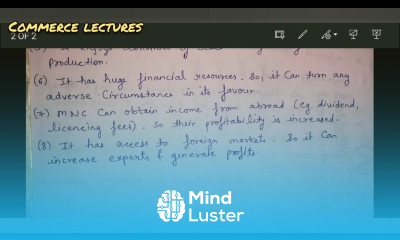 COMMERCE LECTURES
2 OF 2
production.
(6) It has huge financial resources. So, it can turn any
adverse circumstance in its favour.
(7) MNC can obtain income from abroad (eg dividend,
licencing fees). So their profitability is increased.
(8) It has access to foreign markets. So it can
increase exports & generate profits
Mind
Luster